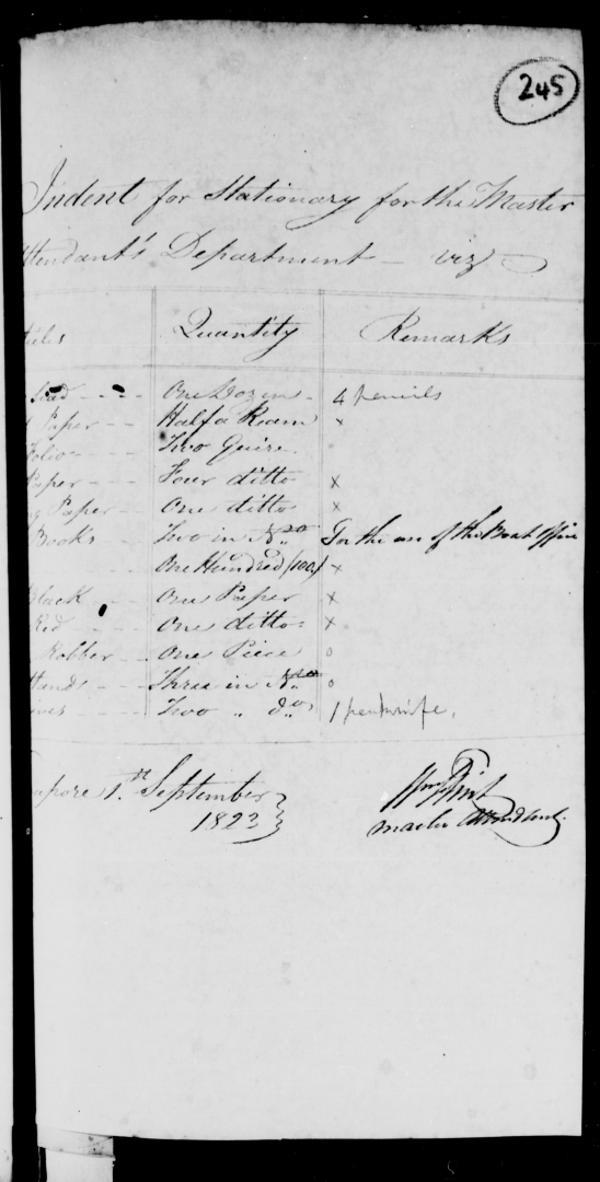 245
Indent for Stationary for the Master
Attendant's Department - viz
Quantity Remarks
Lead - - - - One Dozen - 4 pencils
Paper - - Half a Ream x
Folio - - - Two Quire
Paper - - - Four ditto x
Paper - - One ditto x
Books - - Two in No For the use of the Boat Office
One Hundred (100) x
Black - - One Paper x
Red - - - One ditto x
Robber - - One Piece o
- - - Three in No o
- - - Two " do 1 penknife.
apore 1st September
1823
Wm Flint
Master Attendant.